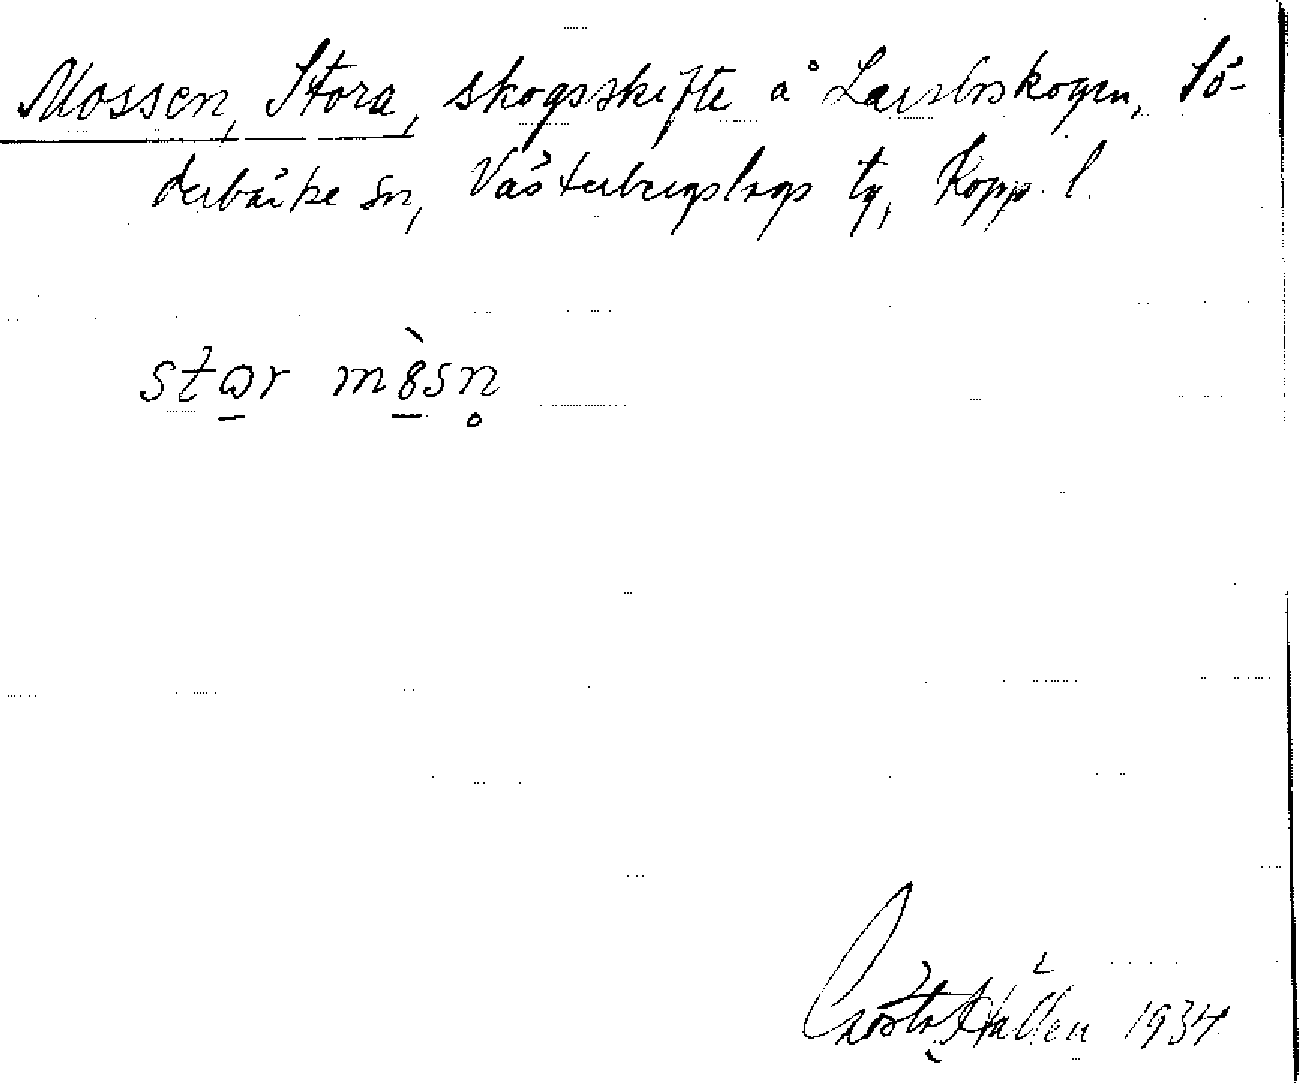 Mossen, Stora, skogsskifte å Larsboskogen, Sö-
derbärke sn, Västerbergslags tg, Kopp. l.
star mòsn̥
Gösta Hallen 1934